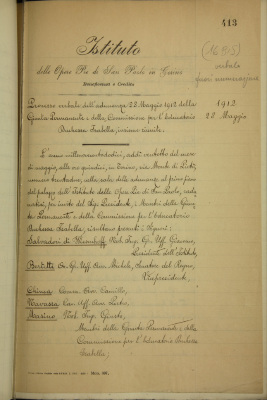 413
Istituto
delle Opere Pie di San Paolo in Torino
Beneficenza e Credito
(16 95)
verbale
fuori numerazione
Processo verbale dell'adunanza 22 Maggio 1912 della
Giunta Permanente e della Commissione per l'Educatorio
Duchessa Isabella, riunione
1912
22 Maggio
L'anno millenovecentododici, addì ventidue del mese
di maggio, alle ore quindici, in Torino, via Monte di Pietà,
numero trentadue, nella sala delle adunanze al primo piano
del palazzo dell'Istituto delle Opere Pie di San Paolo,
per invito del Sig. Presidente, i Membri della Giunta
Permanente e della Commissione per l'Educatorio
Duchessa Isabella, risultano presenti i Signori:
Salvadori di Wiesenhoff, Nob. Ing. Gr. Uff. Giacomo,
Presidente dell'Istituto,
Bertetti Gr. Uff. Avv. Michele, Senatore del Regno,
Vicepresidente,
Avv. Camillo,
Navassa Cav. Uff. Avv.
Nob. Ing.
Membri della Giunta Permanente e della
Commissione per l'Educatorio Duchessa
Isabella;